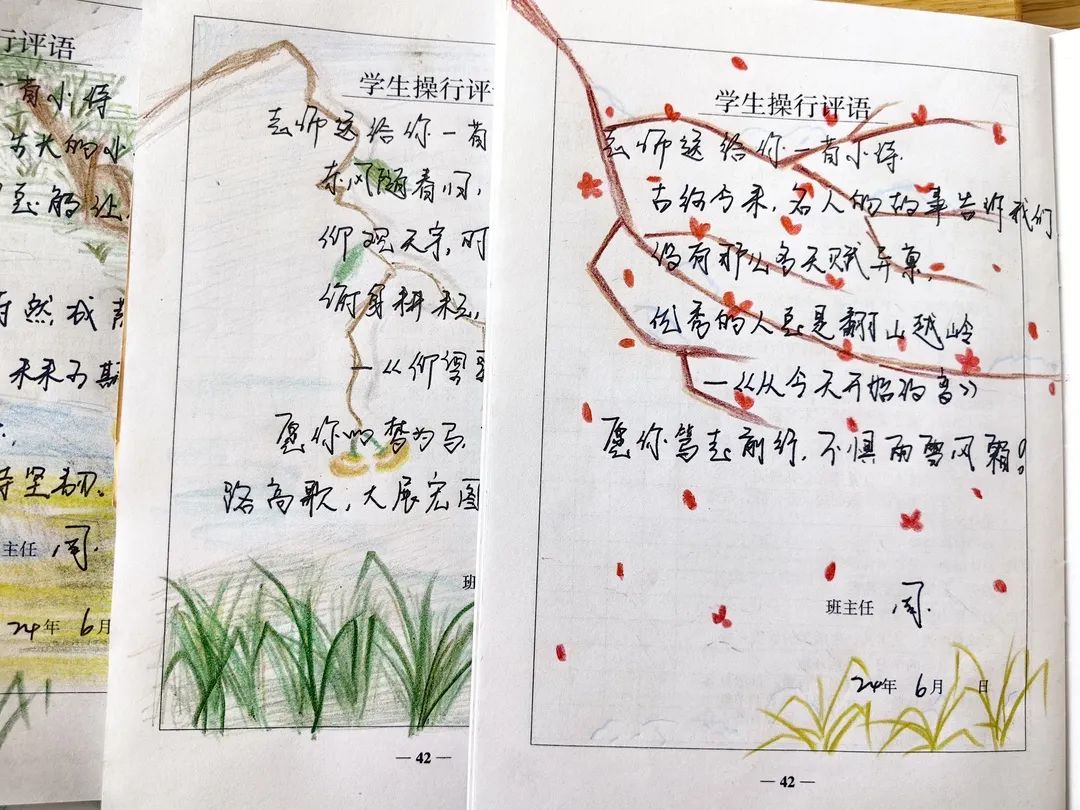 行评语
首小诗
的小
然我
未来可期
持坚韧。
主任 周.
24年 6月
学生操行评
老师送给你一首
东风随春归,
仰观天宇,时
俯身耕耘,
—《仰望
愿你以梦为马,
路高歌,大展宏图
班
— 42 —
学生操行评语
老师送给你一首小诗.
古往今来,名人的故事告诉我们
没有那么多天赋异禀,
优秀的人总是翻山越岭
—《从今天开始
愿你笃志前行,不惧雨雪风霜!
班主任 周.
24年 6月 日
— 42 —